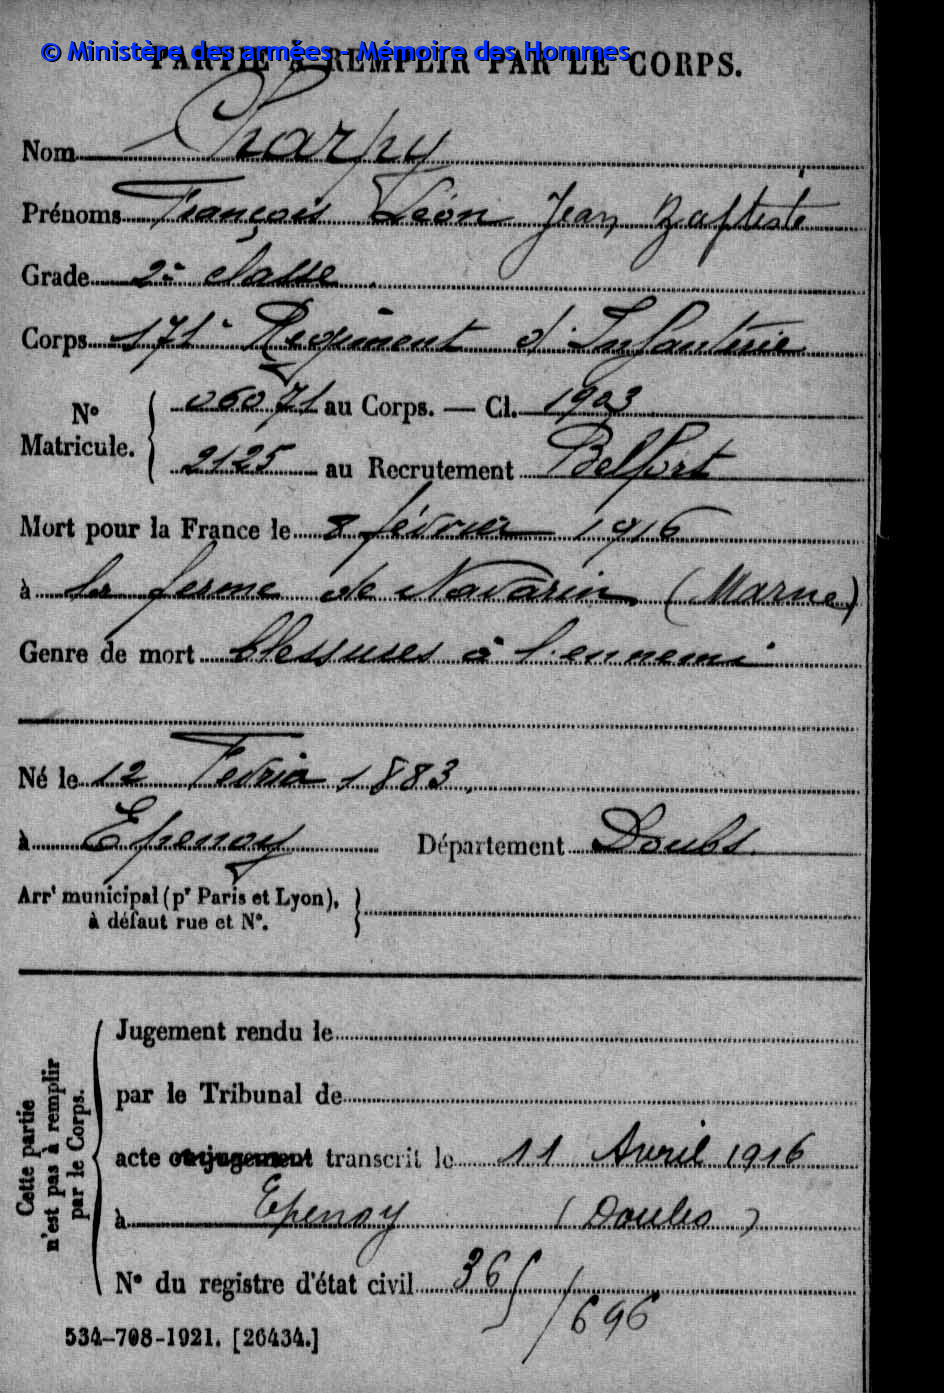 © Ministère des armées - Mémoire des Hommes
PARTIE À REMPLIR PAR LE CORPS.
Nom Charpy
Prénoms François Léon Jean Baptiste
Grade 2e classe
Corps 171e Régiment d'Infanterie
N° Matricule. 06071 au Corps. — Cl. 1903
2125 au Recrutement Belfort
Mort pour la France le 8 février 1916
à la ferme de Navarin (Marne)
Genre de mort blessures à l'ennemi
Né le 12 Fevrier 1883
à Epenoy Département Doubs.
Arrt municipal (pr Paris et Lyon),
à défaut rue et N°.
Cette partie
n'est pas à remplir
par le Corps.
Jugement rendu le
par le Tribunal de
acte ou jugement transcrit le 11 Avril 1916
à Epenoy (Doubs)
N° du registre d'état civil
36
/696
534-708-1921. [26434.]